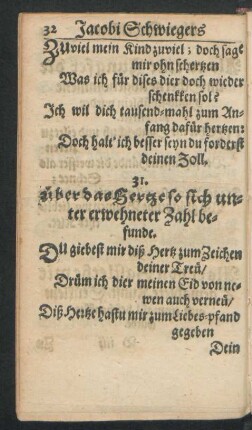 32 Jacobi Schwiegers
Zuviel mein Kind zuviel; doch sage
mir ohn schertzen
Was ich für dises dier doch wieder
schenkken sol?
Ich wil dich tausend-mahl zum An-
fang dafür hertzen:
Doch halt' ich besser seyn du forderst
deinen Zoll.
31.
über das Hertze so sich un-
ter erwehneter Zahl be-
funde.
DU giebest mir diß Hertz zum Zeichen
deiner Treü/
Drüm ich dier meinen Eid von ne-
wen auch verneü/
Diß Hertze hastu mir zum Liebes-pfand
gegeben
Dein